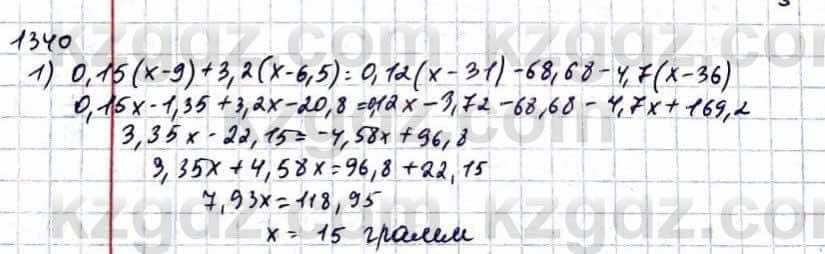 1340
1) 0,15(x-9)+3,2(x-6,5)=0,12(x-31)-68,68-4,7(x-36)
0,15x-1,35+3,2x-20,8=0,12x-3,72-68,68-4,7x+169,2
3,35x-22,15=-4,58x+96,8
3,35x+4,58x=96,8+22,15
7,93x=118,95
x=15 грамм